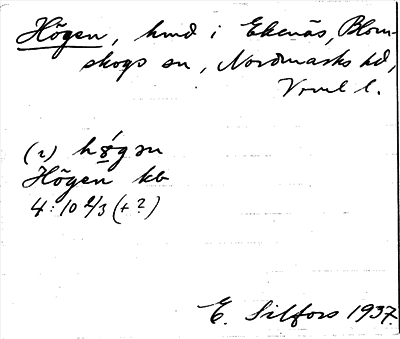 Högen, hmd i Ekenäs, Blom-
skogs sn, Nordmarks hd,
Vrml l.
(2) hǿ̠gən
Högen kb
4:10 2/3 (+?)
E. Silfors 1937.